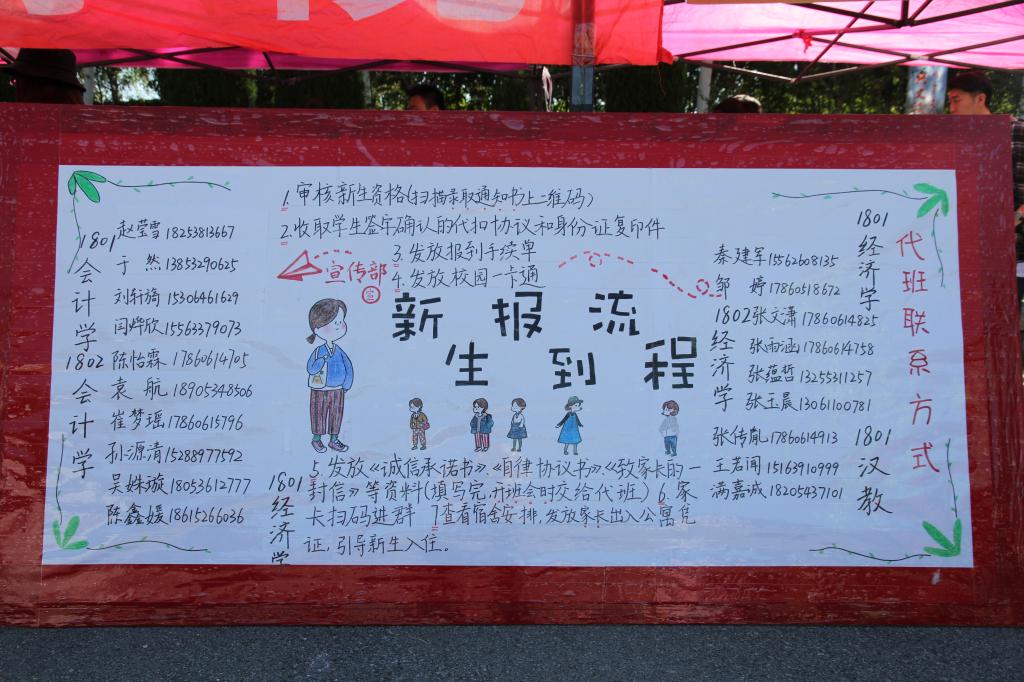 1.审核新生资格(扫描录取通知书上二维码)
2.收取学生签字确认的代扣协议和身份证复印件
3.发放报到手续单
4.发放校园一卡通
宣传部
宣
新生报到流程
5.发放《诚信承诺书》、《自律协议书》、《致家长的一
封信》等资料(填写完,开班会时交给代班) 6.家
长扫码进群 7查看宿舍安排,发放家长出入公寓凭
证,引导新生入住。
1801会计学
赵莹雪 18253813667
于然 13853290625
刘轩旖 15306461629
闫烨欣 15563379073
1802会计学
陈怡霖 17860614705
袁航 18905348506
崔梦瑶 17860615796
孙源清 15288977592
吴姝璇 18053612777
陈鑫媛 18615266036
1801经济学
代班联系方式
1801经济学
秦建军 15562608135
邹婷 17860518672
1802经济学
张文潇 17860614825
张雨涵 17860614758
张蕴哲 13255311257
张玉晨 13061100781
1801汉教
张传胤 17860614913
王若闻 15163910999
满嘉诚 18205437101